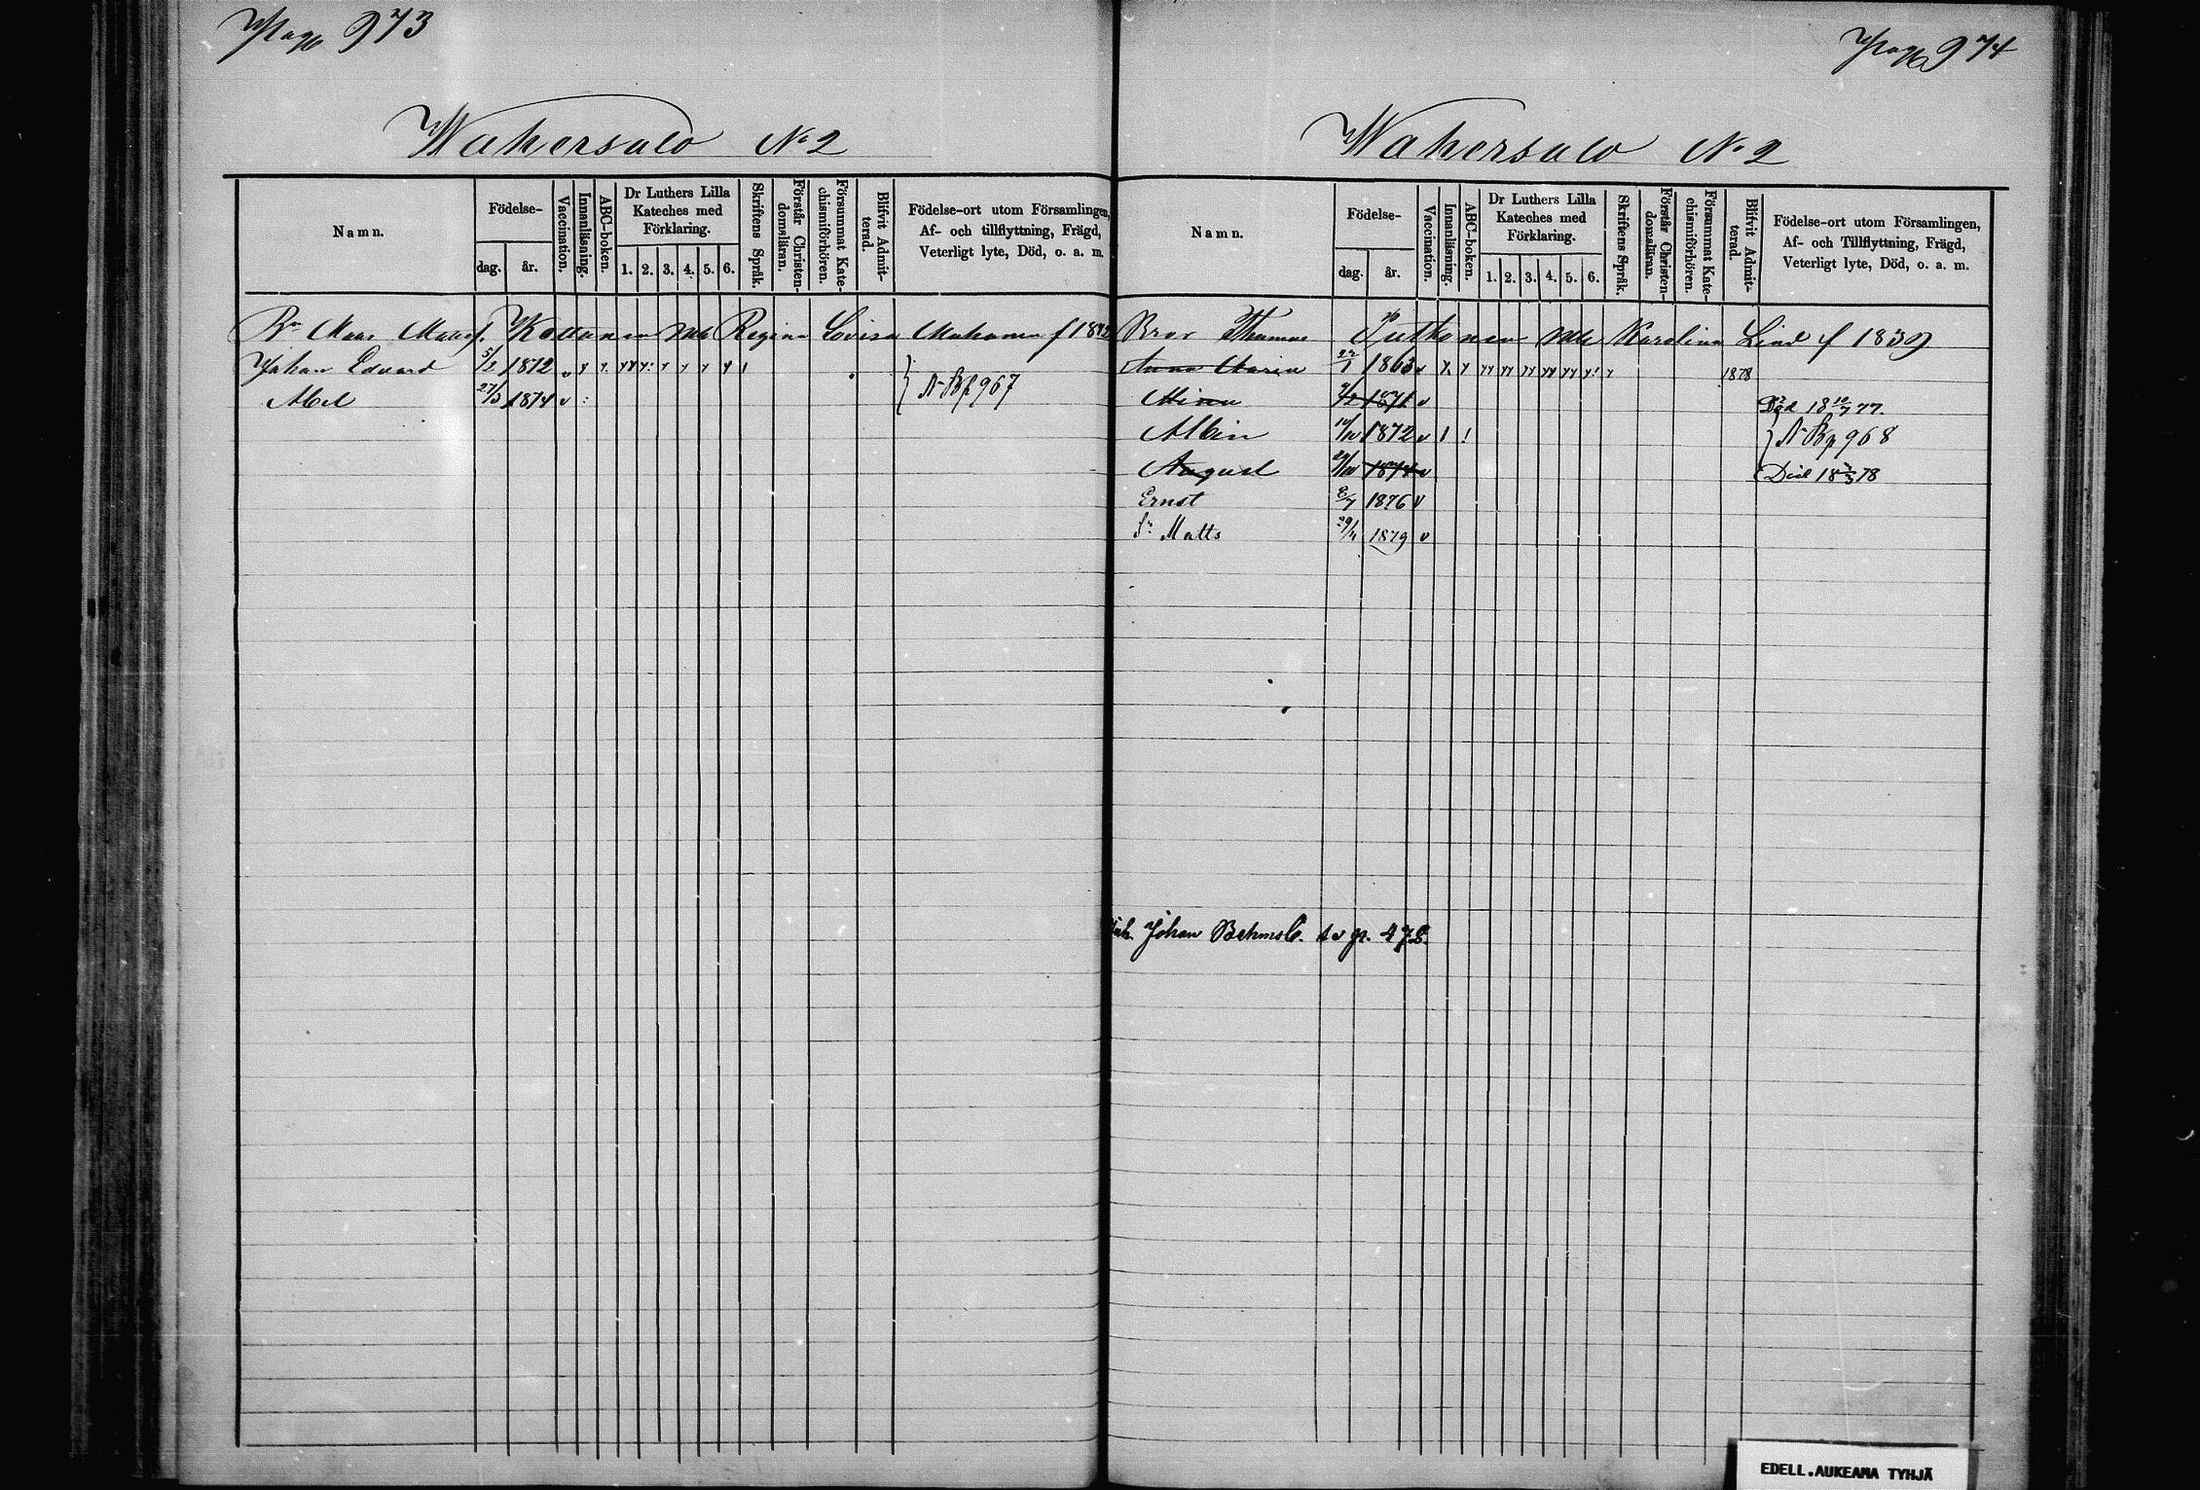 Pag 973
Wahersalo No 2
Namn.
Födelse-
dag.
år.
Vaccination.
Innanläsning.
ABC-boken.
Dr Luthers Lilla
Kateches med
Förklaring.
1. 2. 3. 4. 5. 6.
Skriftens Språk.
Förstår Christen-
domsläran.
Försummat Kate-
chismiförhören.
Blifvit Admit-
terad.
Födelse-ort utom Församlingen,
Af- och tillflyttning, Frägd,
Veterligt lyte, Död, o. a. m.
Matts. Kottonen Regina Lovisa
Johan Edvard 5/2 1872
Abel 27/3 1874
967
Pag 974
Wahersalo No 2
Namn.
Födelse-
dag.
år.
Vaccination.
Innanläsning.
ABC-boken.
Dr Luthers Lilla
Kateches med
Förklaring.
1. 2. 3. 4. 5. 6.
Skriftens Språk.
Förstår Christen-
domsläran.
Försummat Kate-
chismiförhören.
Blifvit Admit-
terad.
Födelse-ort utom Församlingen,
Af- och Tillflyttning, Frägd,
Veterligt lyte, Död, o. a. m.
Thomas Karolina Lind f 1839
Anna Maria 1863 1878
Mina 1871 Död 18 10/7 77.
Albin 1872 968
August 1874 Död 18 78
Ernst 1876
Matts 29/4 1879
Johan
EDELL.AUKEAMA TYHJÄ